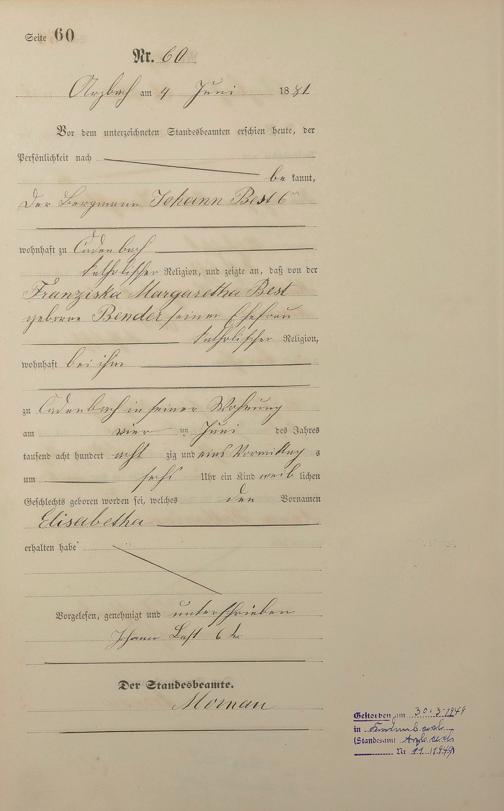 Seite 60
Nr. 60
Arzbach am 4 Juni 1881
Vor dem unterzeichneten Standesbeamten erschien heute, der
Persönlichkeit nach
be kannt,
der Bergmann Johann Best 6
wohnhaft zu Cadenbach
katholischer Religion, und zeigte an, daß von der
Franziska Margaretha Best
geborne Bender seiner Ehefrau
katholischer Religion,
wohnhaft bei ihm
zu Cadenbach in seiner Wohnung
am vier ten Juni des Jahres
tausend acht hundert acht zig und eins Vormittag s
um sechs Uhr ein Kind weib lichen
Geschlechts geboren worden sei, welches den Vornamen
Elisabetha
erhalten habe
Vorgelesen, genehmigt und unterschrieben
Johann Best 6
Der Standesbeamte.
Mornau
Gestorben am 30.3.1949
in
(Standesamt Arzbach
Nr 11/1949)